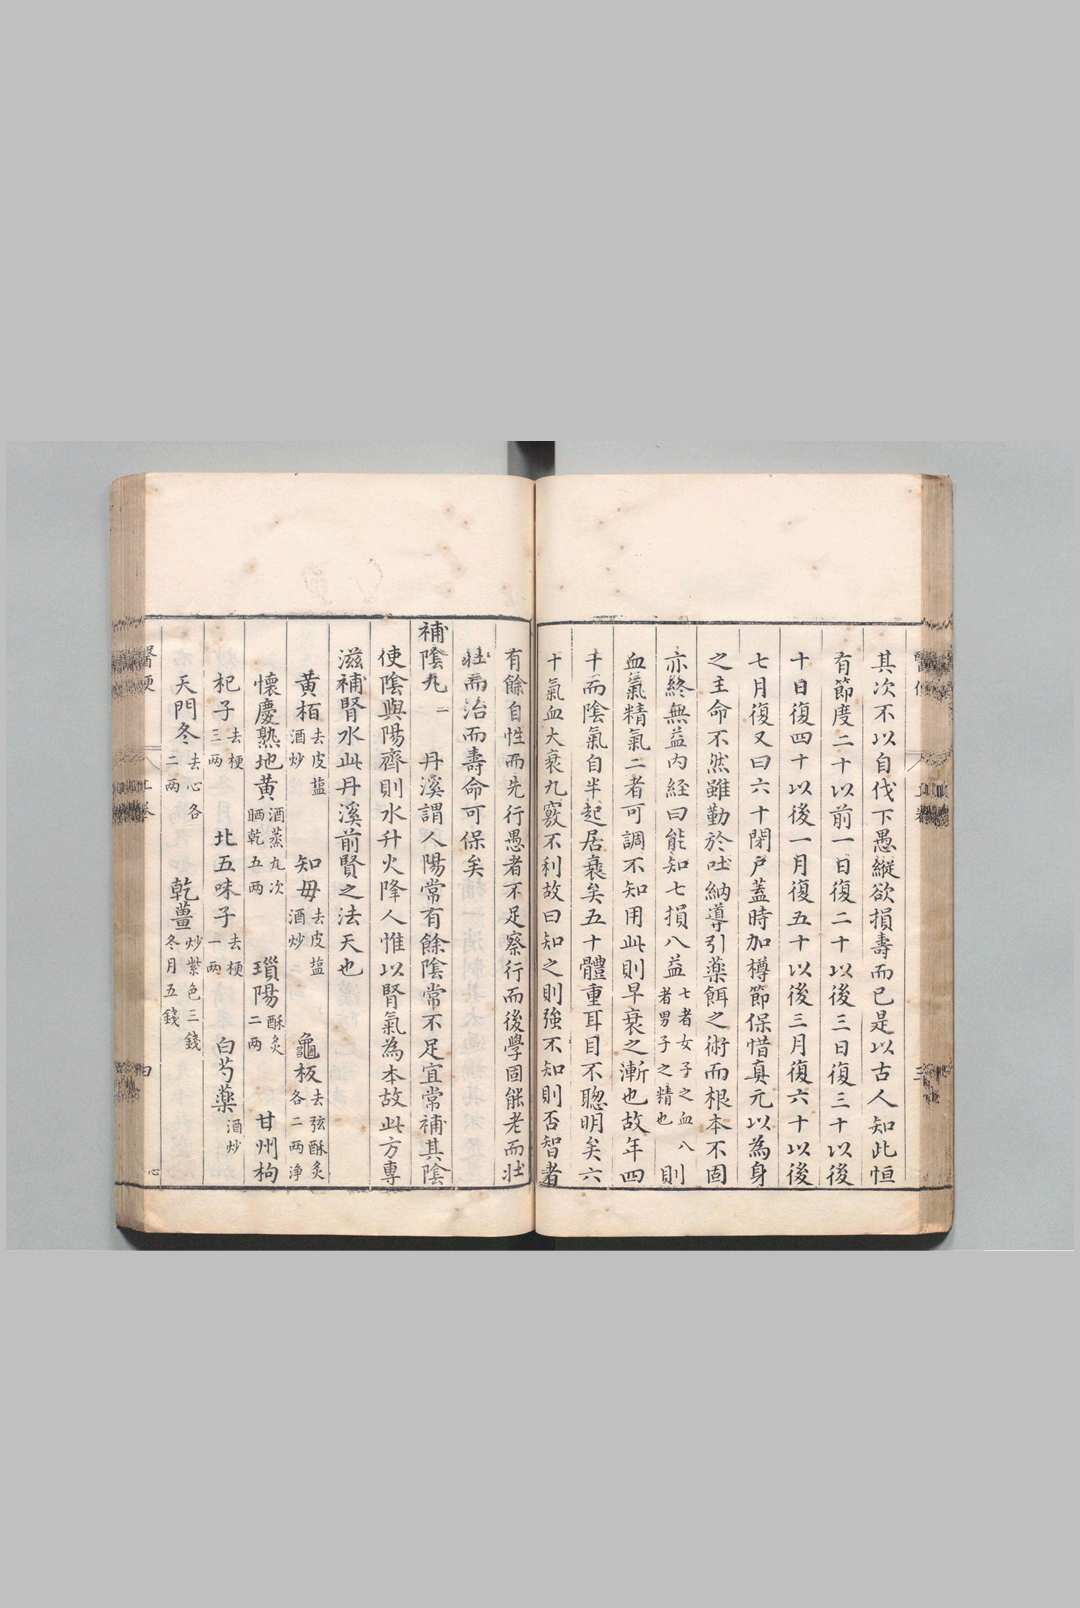 其次不以自伐下愚縱欲損壽而已是以古人知此恒
有節度二十以前一日復二十以後三日復三十以後
十日復四十以後一月復五十以後三月復六十以後
七月復又曰六十閉戶蓋時加樽節保惜真元以為身
之主命不然雖勤於吐納導引藥餌之術而根本不固
亦終無益内経曰能知七損八益七者女子之血八者男子之精也則
血氣精氣二者可調不知用此則早衰之漸也故年四
十而陰氣自半起居衰矣五十體重耳目不聰明矣六
十氣血大衰九竅不利故曰知之則強不知則否智者
有餘自性而先行愚者不足察行而後學固能老而壯
壯而治而壽命可保矣
補陰丸一 丹溪謂人陽常有餘陰常不足宜常補其陰
使陰與陽齊則水升火降人惟以腎氣為本故此方專
滋補腎水此丹溪前賢之法天也
黄栢去皮盐酒炒 知毋去皮盐酒炒 龜板去弦酥炙各二两净
懷慶熟地黄酒蒸九次晒乾五两 瑣陽酥炙二两 甘州枸
杞子去梗三两 北五味子去梗一两 白芍藥酒炒
天門冬去心各二两 乾薑炒紫色三錢冬月五錢